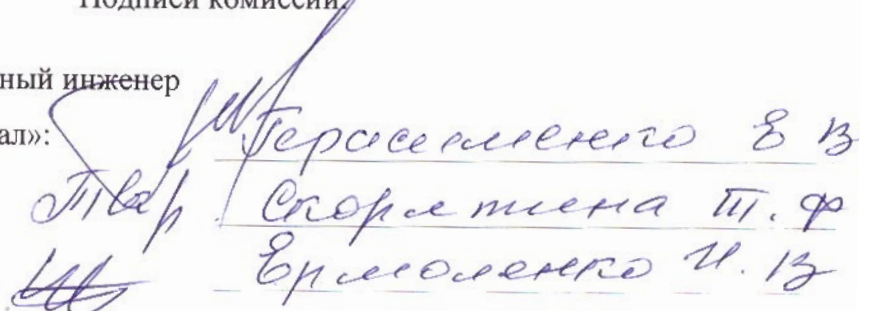 Подписи комиссии:
ный инженер
ал»: Герасименко Е В
Т. Ф
Ермоленко И. В